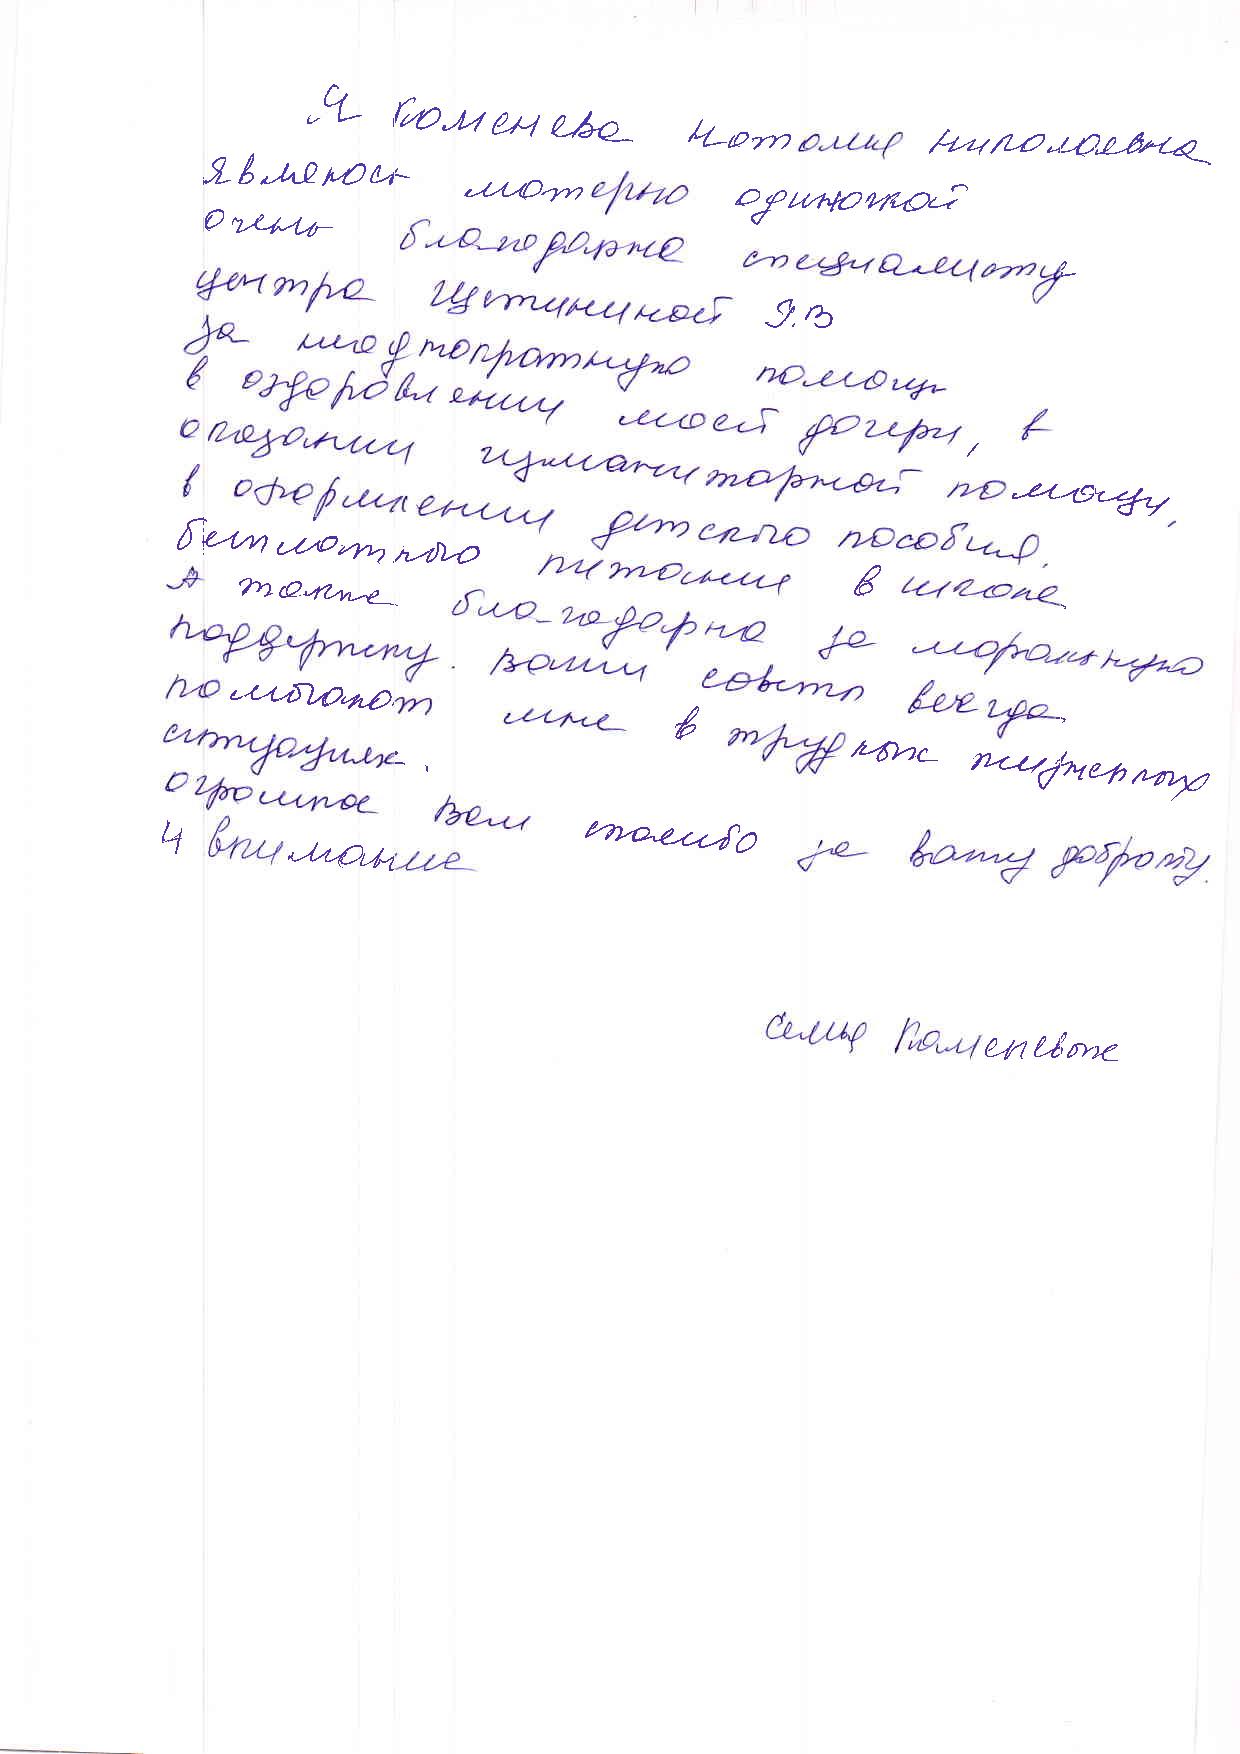 Я Каменева Наталия Николаевна
являюсь матерью одиночкой
очень благодарна специалисту
центра Щетининой Я.В
за неоднократную помощь
в оздоровлении моей дочери, в
оказании гуманитарной помощи,
в оформлении детского пособия,
бесплатного питания в школе
А также благодарна за моральную
поддержку. Ваши советы всегда
помогают мне в трудных жизненных
ситуациях.
Огромное Вам спасибо за вашу доброту.
и внимание
Семья Каменевых